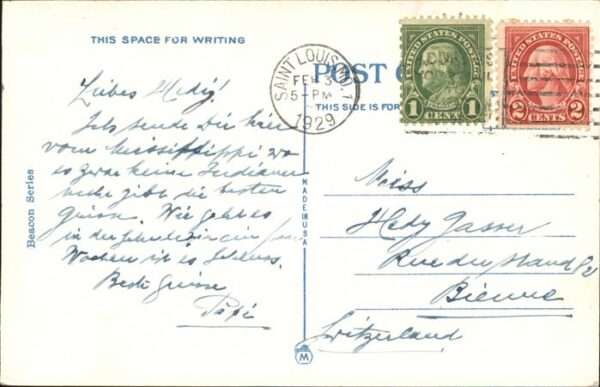 THIS SPACE FOR WRITING
Liebes Hedy!
Ich sende Dir hier
vom Mississippi wo
es zwar keine Indianer
mehr gibt die besten
Grüsse. Wie geht es
in der
Wochen ist es Schluss.
Beste Grüsse
Papi
Beacon Series
MADE IN USA
M
POST C
THIS SIDE IS FOR
SAINT LOUIS, MO.
FEB 3
5-PM
1929
UNITED STATES POSTAGE
1 CENT 1
UNITED STATES POSTAGE
2 CENTS 2
Miss
Hedy Gasser
Rue du Stand
Bienne
Switzerland